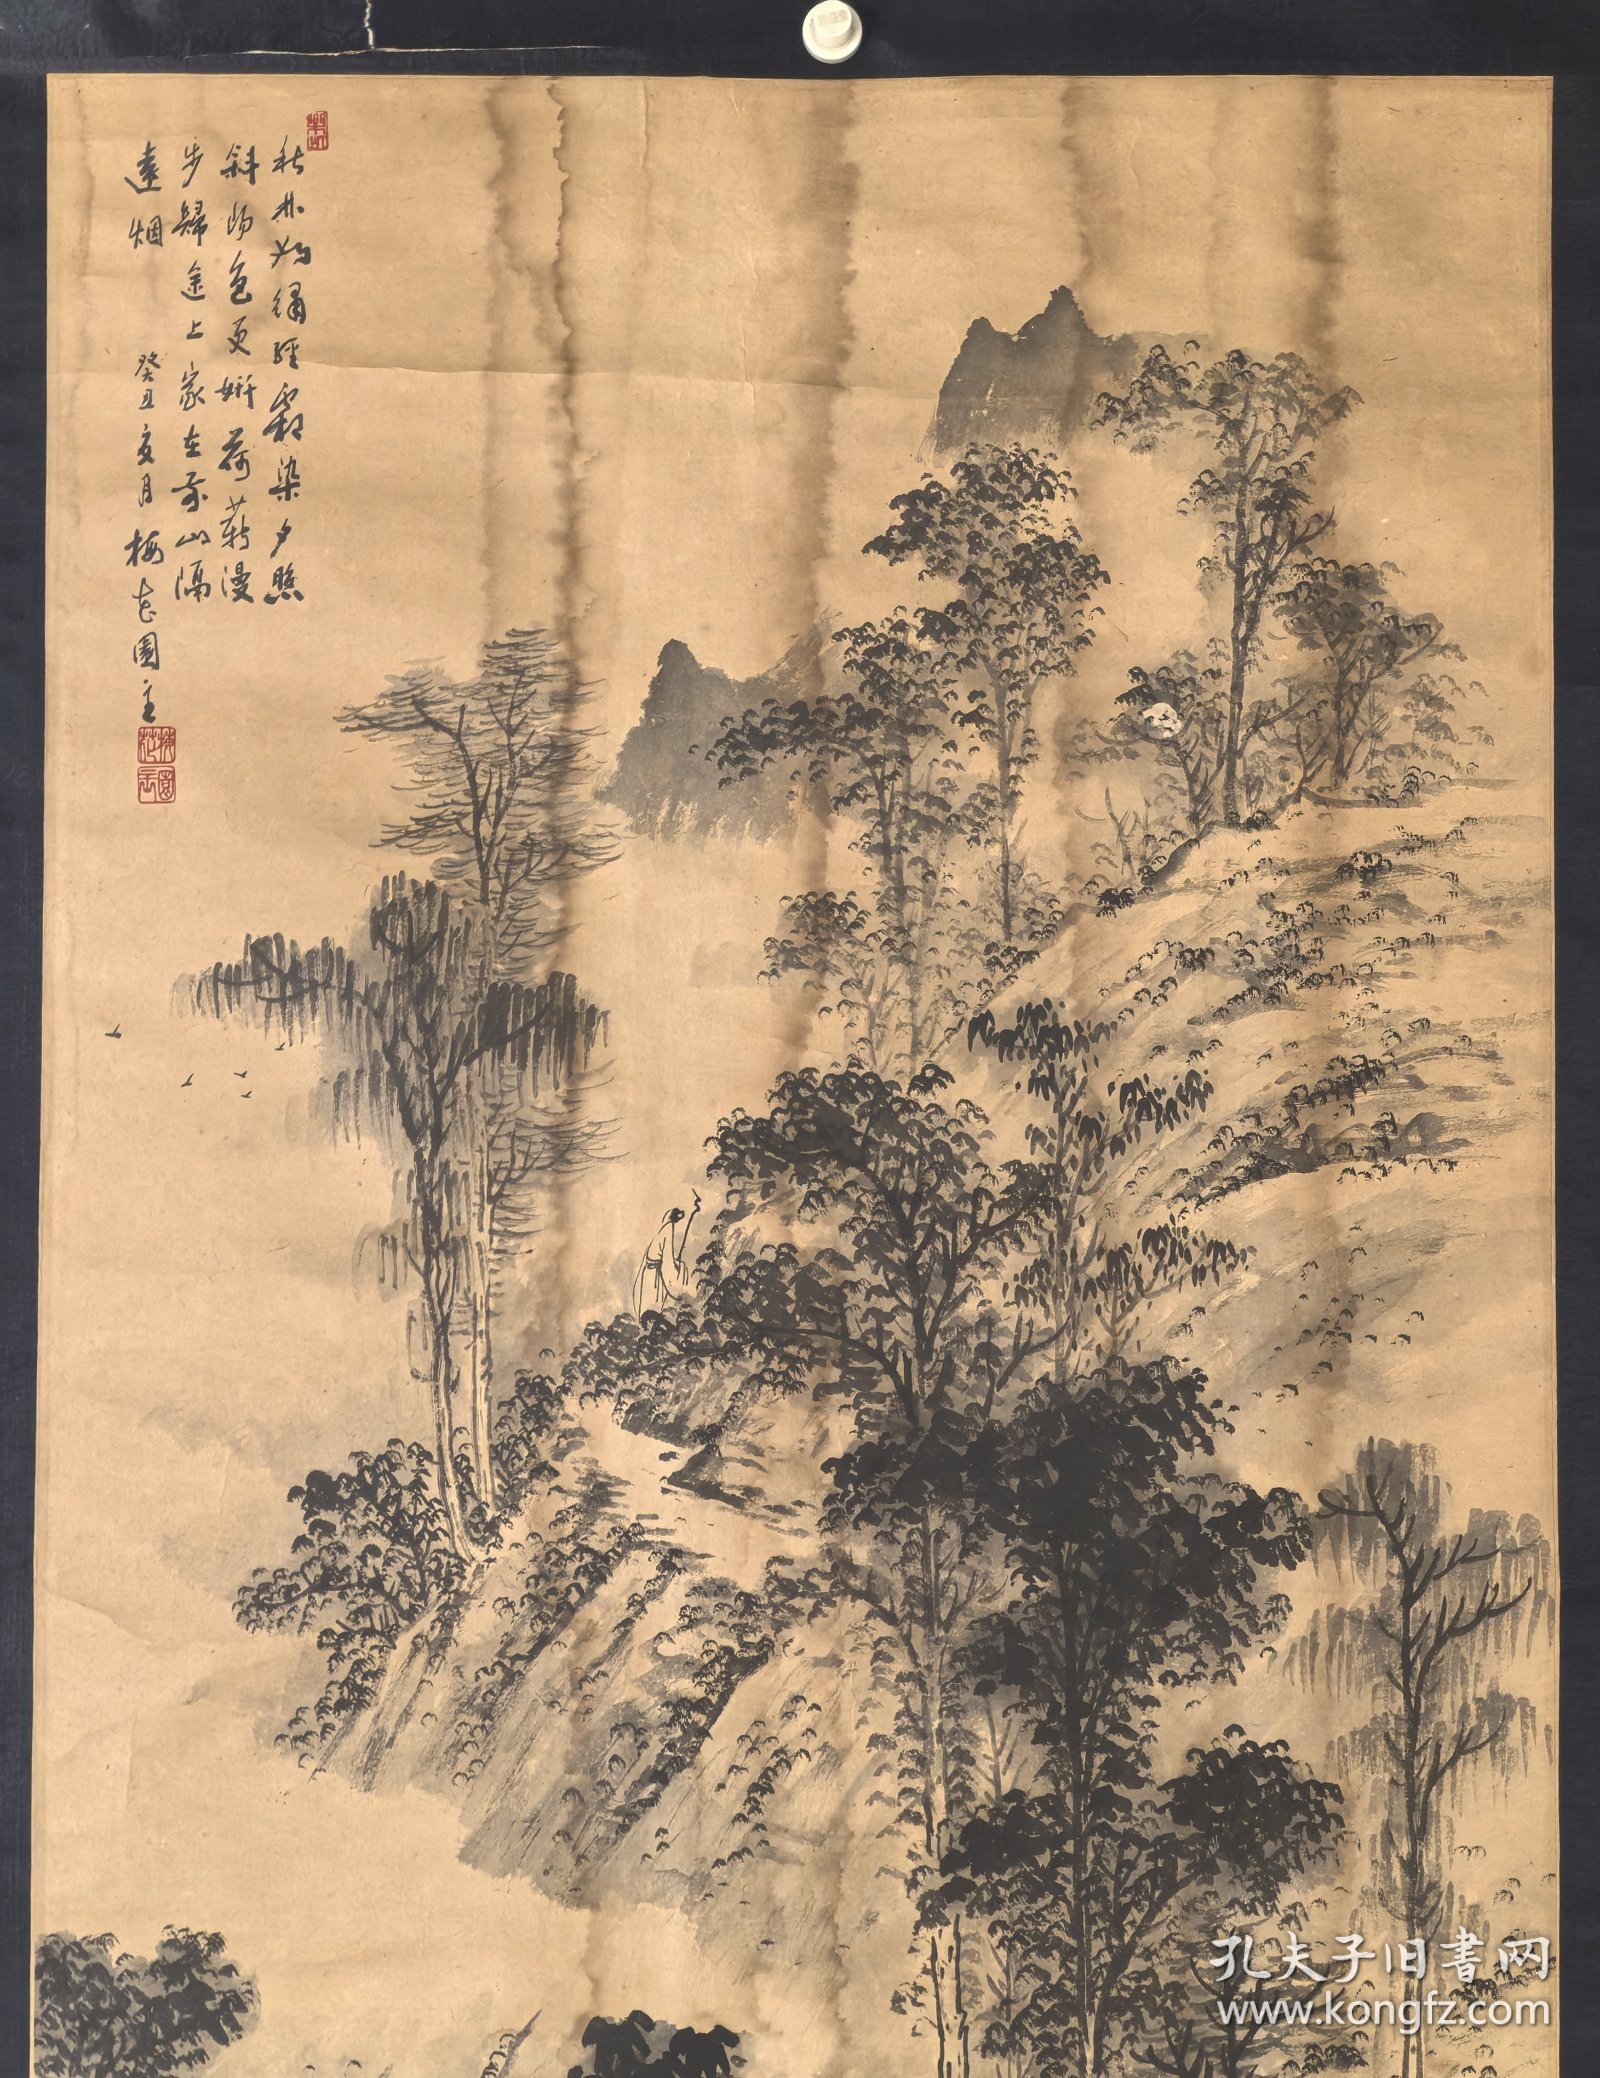 秋林如繡經霜染夕照
斜陽色更妍荷薪漫
步歸途上家在前山隔
遠烟
癸丑亥月梅花園主
孔夫子旧書网
www.kongfz.com